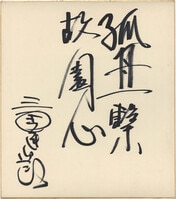 孤舟一繫
故園心